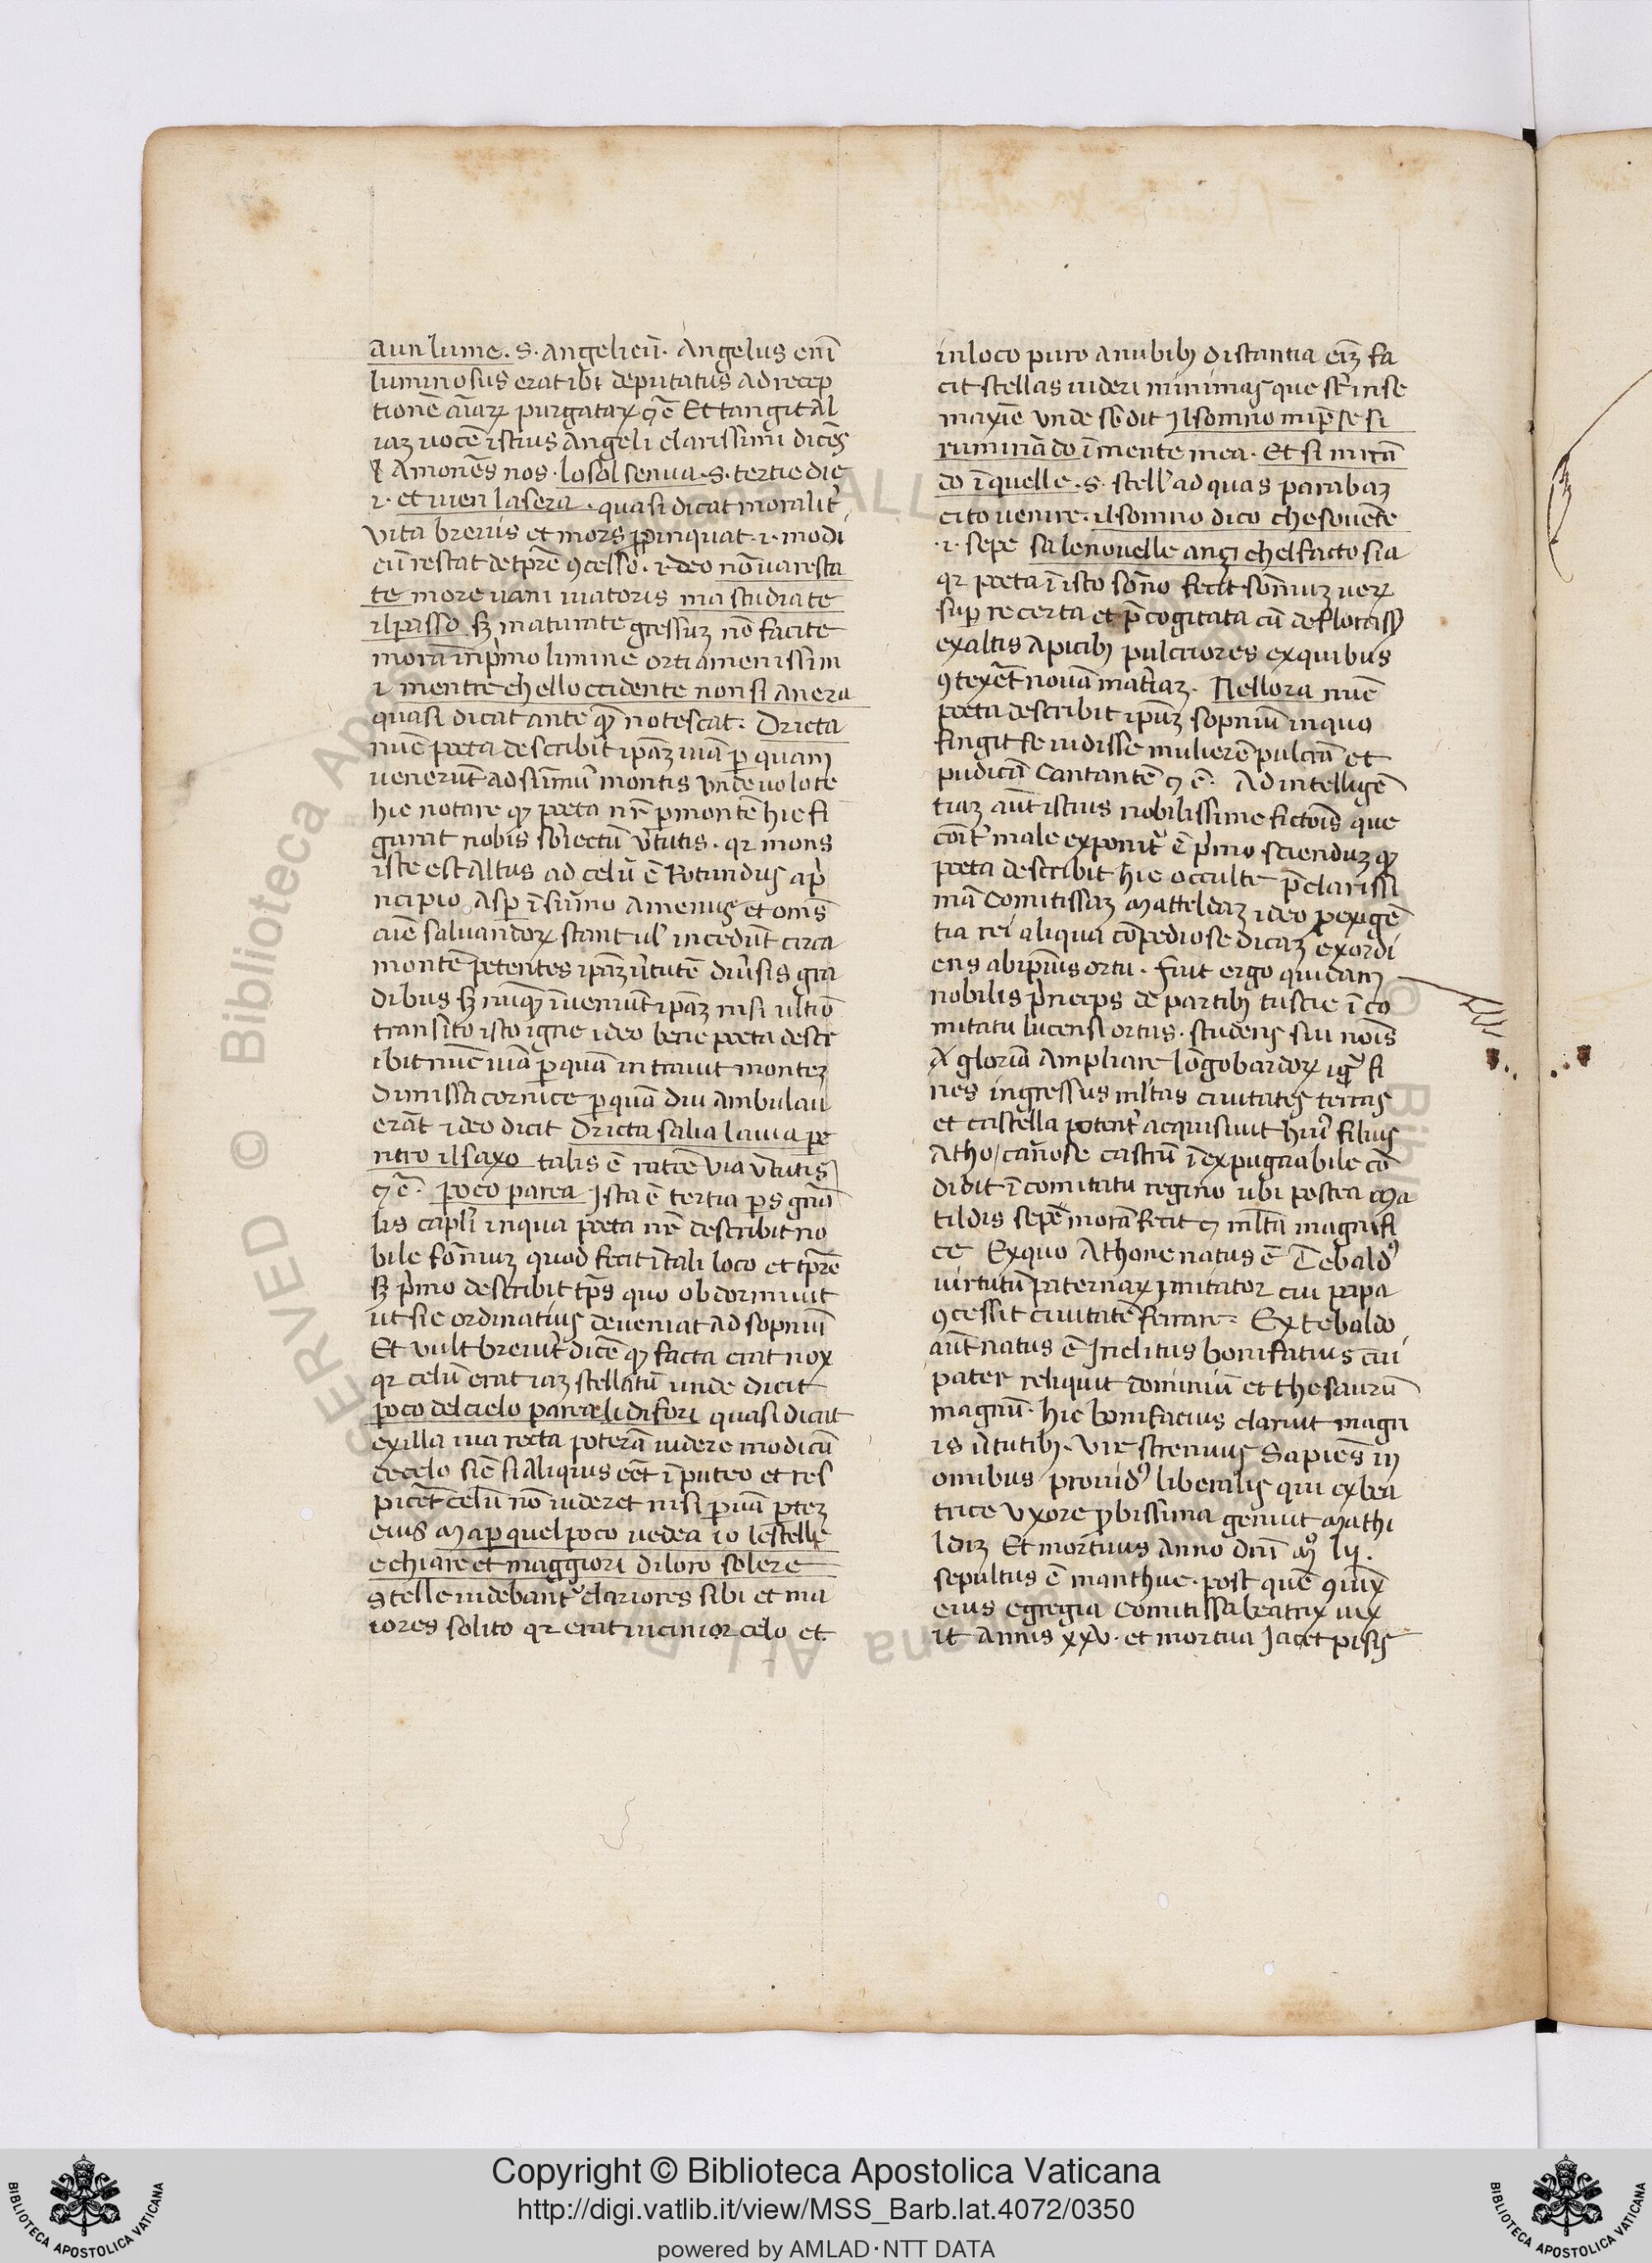 aun lume . s . angelicū . Angelus enī
luminosus erat ibi deputatus ad recep
tionē aīaꝝ purgataꝝ ⁊ ē Et tangit al
iaꝫ uocē istius angeli clarissimi dicēs
⁊ amonēs nos . lo sol senua . s . tertie die
⁊ . et uien la sera . quasi dicat moralit̓
vita breuis et mors ꝓpinquat . ⁊ . modi
cū restat de tp̄re ꝯcesso . ideo nō ua resta
te more uani uiatoris ma studiate
il passo sꝫ maturate gressuꝫ nō facite
morā in p̓mo limine orti amenissim
i mentre chelloccidente non si anera
quasi dicat ante qꝫ notescat . Dricta
nūc poeta describit ipāꝫ uiā ꝑ quam
uenerūt ad sūmū montis vnde uolote
hic notare qꝫ poeta nr̄ ꝑ montē hic fi
gurat nobis sb̓iectū v̓tutis . qꝛ mons
iste est altus ad celū ē Rotundus a p̓
ncipio asꝑ ī sūmo amenus et om̄s
aīe saluandoꝝ stant ul̓ incedūt circa
montē petentes ipāꝫ v̓tutē diu̓sis gra
dibus sꝫ nūqꝫ īueniūt ipāꝫ nisi ultīo
transito isto igne ideo bene poeta descr
ibit nūc uiā ꝑ quā intrauit monteꝫ
dimissa cornice ꝑ quā diu ambulau
erāt ideo dicit Dricta salia la uia pe
ntro il saxo talis ē rectē via v̓tutis
⁊ ē . poco parea Ista ē tertia ꝑs gn̄a
lis capl̓i in qua poeta nr̄ describit no
bile somniuꝫ quod fecit ī tali loco et tp̄re
sꝫ p̓mo describit tp̄s quo obdormiuit
ut sic ordinatius deueniat ad sopniū
Et vult breuit̓ dicē qꝫ facta erat nox
qꝛ celū erat iaꝫ stellatū unde dicit
poco del cielo parea li di fori quasi dicat
ex illa uia recta poterā uidere modicū
de celo sic̄ si aliquis eēt ī puteo et res
picēt celū nō uideret nisi ꝑuā ꝑteꝫ
eius Ma ꝑ quel poco uedea io le stelle
e chiare et maggiori di loro solere
Stelle uidebant̓ clariores sibi et ma
iores solito qꝛ erat uicinior celo et
in loco puro a nubibꝫ distantia eīꝫ fa
cit stellas uideri minimas que sūt in se
maxīe vnde sb̓dit Il somno mi p̄se si
ruminādo ī mente mea . Et si mirā
do ī quelle . s . stell̓ ad quas parabaꝫ
cito uenire . il somno dico che souente
. ⁊ . sepe sa le nouelle anzi chel facto sia
qꝛ poeta ī isto sōno fecit sōniuꝫ ueꝝ
suꝑ re certa et p̄cogitata cū deflorass̓
ex altis apicibꝫ pulcriores ex quibus
ꝯtexēt nouā mat̓iaꝫ . Nellora nūc
poeta describit ipūꝫ sopniū in quo
fingit se uidisse mulierē pulcrā et
pudicā cantantē ⁊ ē . Ad intelligē
tiaꝫ aūt istius nobilissime fictōis que
cōit̓ male exponit̓ ē p̓mo sciendūꝫ qꝫ
poeta describit hic occulte p̄clarissi
mā Comitissaꝫ Matteldaꝫ ideo ꝑ exigē
tia rei aliqua cōpendiose dicaꝫ exordi
ens ab ipīus ortu . Fuit ergo quidam
nobilis p̓nceps de partibꝫ tuscie ī co
mitatu lucensi ortus . studens sui nōis
⁊ gloriā ampliare lōgobardoꝝ igr̄ fi
nes ingressus ml̓tas ciuitates terras
et castella potent̓ acquisiuit hui̓ filius
Atho / canose castrū īexpugnabile cō
didit ī comitatu regino ubi postea Ma
tildis sepe morā fecit ⁊ ml̓ta magnifi
ce Ex quo Athone natus ē Tebaldꝰ
uirtutū paternaꝝ imitator cui papa
ꝯcessit ciuitatē ferrare . Ex tebaldo
aūt natus ē Inclitus bonifatius cui
pater reliquit dominiū et thesaurū
magnū . hic bonifacius claruit magn
is v̓tutibꝫ . Vir strenuus Sapiēs in
omibus prouidꝰ liberalis qui ex bea
trice vxore ꝓbissima genuit Mathi
ldaꝫ Et mortuus Anno dn̄i Mº lij .
sepultus ē manthue . post quē ꝯiūx
eius egregia comitissa beatrix uix
it annis xxv . et mortua Jacet pisis
Copyright © Biblioteca Apostolica Vaticana
http://digi.vatlib.it/view/MSS_Barb.lat.4072/0350
powered by AMLAD·NTT DATA
BIBLIOTECA APOSTOLICA VATICANA
BIBLIOTECA APOSTOLICA VATICANA